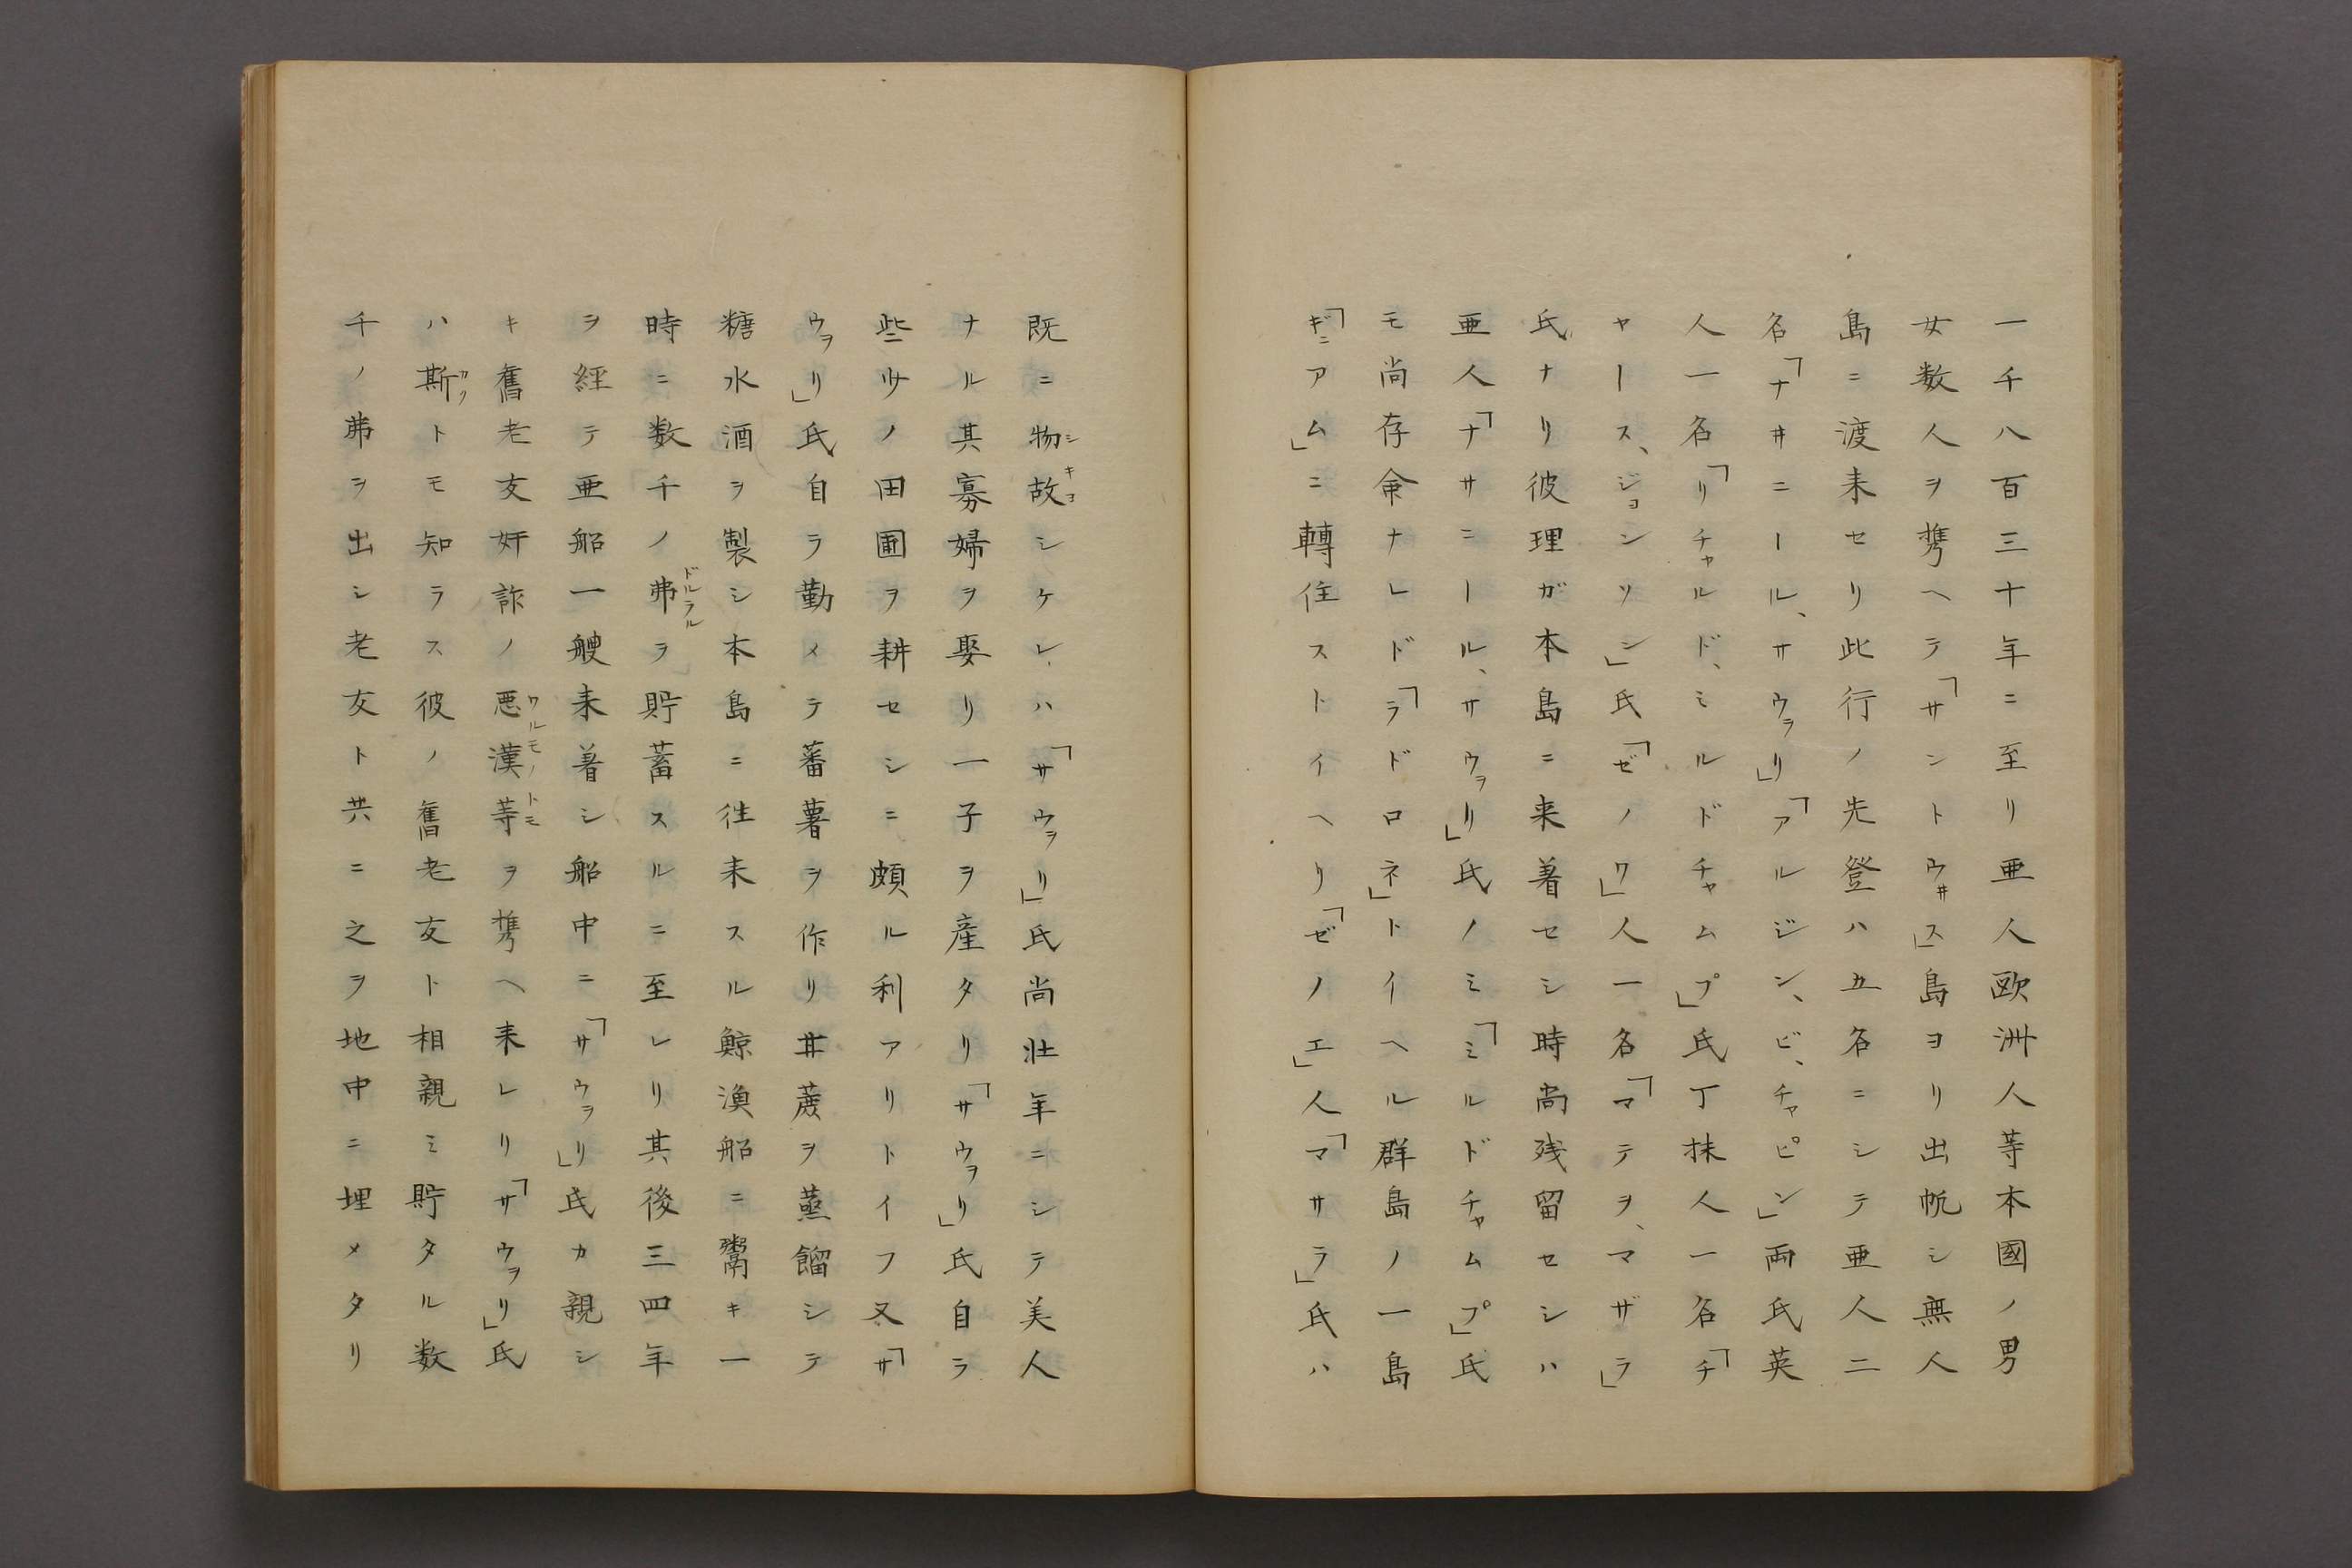 一千八百三十年ニ至リ亜人欧洲人等本國ノ男
女数人ヲ携ヘテ「サントウヰス」島ヨリ出帆シ無人
島ニ渡来セリ此行ノ先登ハ五名ニシテ亜人二
名「ナサニール、サウヲリ」「アルジン、ビ、チャピン」両氏英
人一名「リチャルド、ミルドチャムプ」氏丁抹人一名「チ
ヤールス、ジョンソン」氏「ゼノワ」人一名「マテヲ、マザラ」
氏ナリ彼理ガ本島ニ来着セシ時尚残留セシハ
亜人「ナサニール、サウヲリ」氏ノミ「ミルドチャムプ」氏
モ尚存命ナレドモ「ラドロネ」トイヘル群島ノ一島
「ギニアム」ニ轉住ストイヘリ「ゼノエ」人「マサラ」氏ハ
既ニ物故シケレハ「サウヲリ」氏尚壮年ニシテ美人
シキヨ
ナル其寡婦ヲ娶リ一子ヲ産タリ「サウヲリ」氏自ラ
些少ノ田圃ヲ耕セシニ頗ル利アリトイフ又「サ
ウヲリ」氏自ラ勤メテ蕃薯ヲ作リ甘蔗ヲ蒸餾シテ
糖水酒ヲ製シ本島ニ往来スル鯨漁船ニ鬻キ一
時ニ数千ノ弗ヲ貯蓄スルニ至レリ其後三四年
ドルラル
ヲ経テ亜船一艘来着シ船中ニ「サウヲリ」氏カ親シ
キ舊老友奸詐ノ悪漢等ヲ携ヘ来レリ「サウヲリ」氏
ワルモノトモ
ハ斯トモ知ラス彼ノ舊老友ト相親ミ貯タル数
カク
千ノ弗ヲ出シ老友ト共ニ之ヲ地中ニ埋メタリ